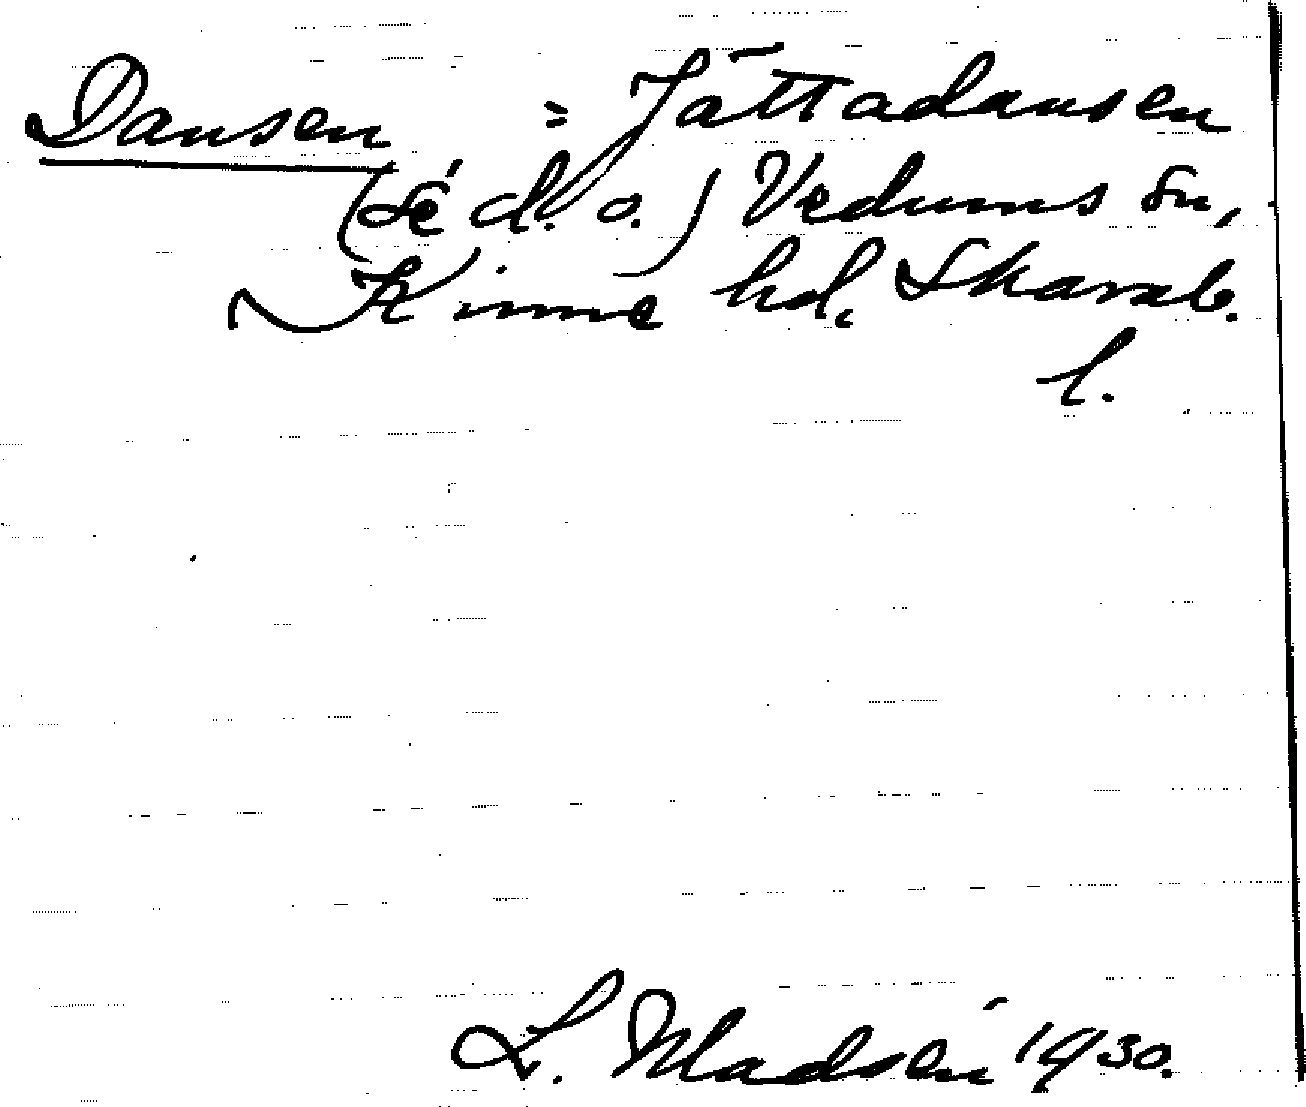 Dansen = Jättadansen
(Se d. o.) Vedums sn,
Kinne hd, Skarab.
l.
L. Madsén 1930.